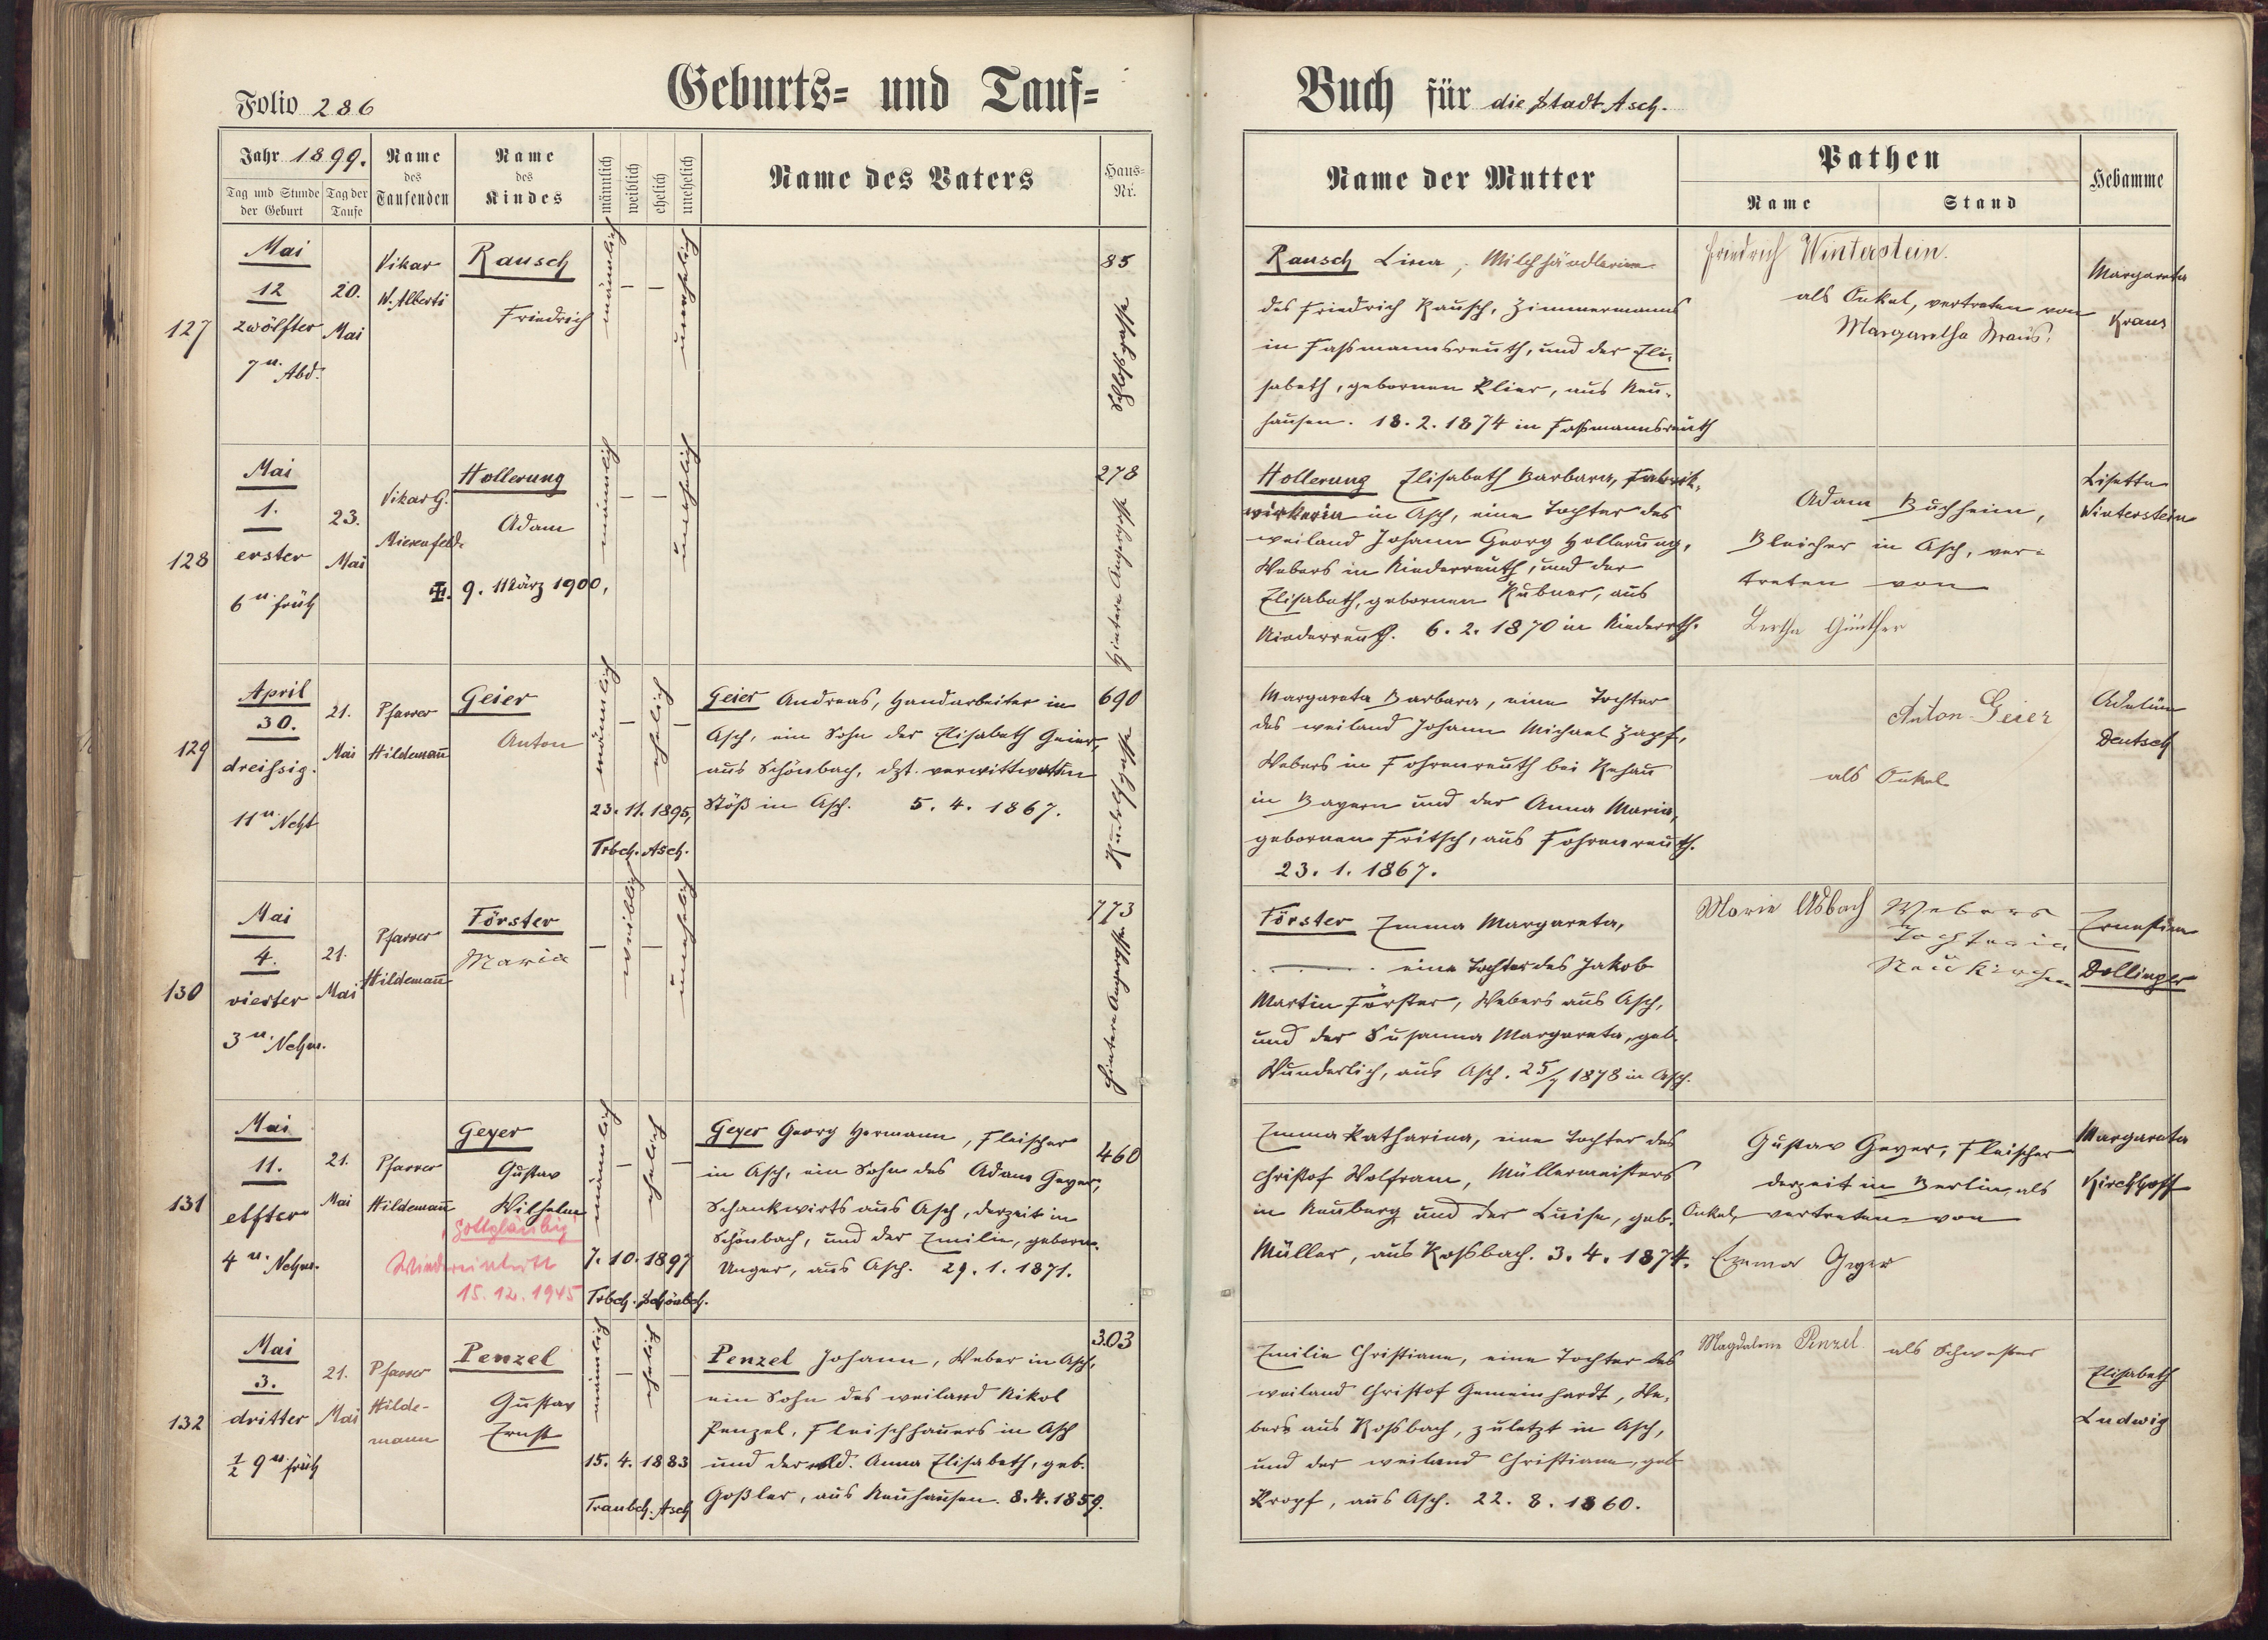 Folio 286
Geburts- und Tauf-
Buch für die Stadt Asch.
Jahr 1899.
Tag und Stunde der Geburt
Tag der Taufe
Name des Taufenden
Name des Kindes
männlich
weiblich
ehelich
unehelich
Name des Vaters
Haus-Nr.
Name der Mutter
Pathen
Name
Stand
Hebamme
127
Mai
12
zwölfter
7 u. Abd.
20.
Mai
Vikar
W. Alberti
Rausch
Friedrich
männlich
—
—
unehelich
85
Schloßgasse
Rausch Lina, Milchhändlerin
des Friedrich Rausch, Zimmermanns
in Faßmannsreuth, und der Eli-
sabeth, gebornen Klier, aus Neu-
hausen. 18. 2. 1874 in Faßmannsreuth
Friedrich Winterstein.
als Onkel, vertreten von
Margaretha Kraus.
Margareta
Kraus
128
Mai
1.
erster
6 u. früh
23.
Mai
Vikar G.
Mierenfeld.
Hollerung
Adam
9. März 1900,
männlich
—
—
unehelich
278
Hintere Angergasse
Hollerung Elisabeth Barbara, Fabrik-
wirkerin in Asch, eine Tochter des
weiland Johann Georg Hollerung,
Webers in Niederreuth, und der
Elisabeth, gebornen Rubner, aus
Niederreuth. 6. 2. 1870 in Niederrth.
Adam Buchheim,
Bleicher in Asch, ver-
treten von
Bertha Günther
Lisetta
Winterstein
129
April
30.
dreissig.
11 u. Ncht
21.
Mai
Pfarrer
Hildemann
Geier
Anton
männlich
—
ehelich
—
23. 11. 1895,
Trbch. Asch.
Geier Andreas, Handarbeiter in
Asch, ein Sohn der Elisabeth Geier,
aus Schönbach, dzt. verwittweten
Stöß in Asch. 5. 4. 1867.
690
Rudolfgasse
Margareta Barbara, eine Tochter
des weiland Johann Michael Zapf,
Webers in Fohrenreuth bei Rehau
in Bayern und der Anna Maria,
gebornen Fritsch, aus Fohrenreuth.
23. 1. 1867.
Anton Geier
als Onkel
Adeline
Deutsch
130
Mai
4.
vierter
3 u. Nchm.
21.
Mai
Pfarrer
Hildemann
Förster
Maria
—
weiblich
—
unehelich
773
Hintere Angergasse
Förster Emma Margareta,
eine Tochter des Jakob
Martin Förster, Webers aus Asch,
und der Susanna Margareta, geb.
Wunderlich, aus Asch. 25/7 1878 in Asch.
Marie Asbach
Webers
Tochter in
Neukirchen
Ernestine
Dollinger
131
Mai
11.
elfter
4 u. Nchm.
21.
Mai
Pfarrer
Hildemann
Geyer
Gustav
Wilhelm
gottgläubig
Wiedereintritt
15. 12. 1945
männlich
—
ehelich
—
7. 10. 1897
Trbch. Schönbch.
Geyer Georg Hermann, Fleischer
in Asch, ein Sohn des Adam Geyer,
Schankwirts aus Asch, derzeit in
Schönbach, und der Emilie, geborn.
Unger, aus Asch. 29. 1. 1871.
460
Emma Katharina, eine Tochter des
Christof Wolfram, Müllermeisters
in Neuberg und der Luise, geb.
Müller, aus Roßbach. 3. 4. 1874.
Gustav Geyer, Fleischer
derzeit in Berlin, als
Onkel, vertreten von
Emma Geyer
Margareta
Kirchhoff
132
Mai
3.
dritter
½ 9 u. früh
21.
Mai
Pfarrer
Hilde-
mann
Penzel
Gustav
Ernst
männlich
—
ehelich
—
15. 4. 1883
Traubch. Asch
Penzel Johann, Weber in Asch,
ein Sohn des weiland Nikol
Penzel, Fleischhauers in Asch
und der wld. Anna Elisabeth, geb.
Goßler, aus Neuhausen. 8. 4. 1859.
303
Emilie Christiane, eine Tochter des
weiland Christof Gemeinhardt, We-
bers aus Roßbach, zuletzt in Asch,
und der weiland Christiane, geb
Kropf, aus Asch. 22. 8. 1860.
Magdalene Penzel
als Schwester
Elisabeth
Ludwig